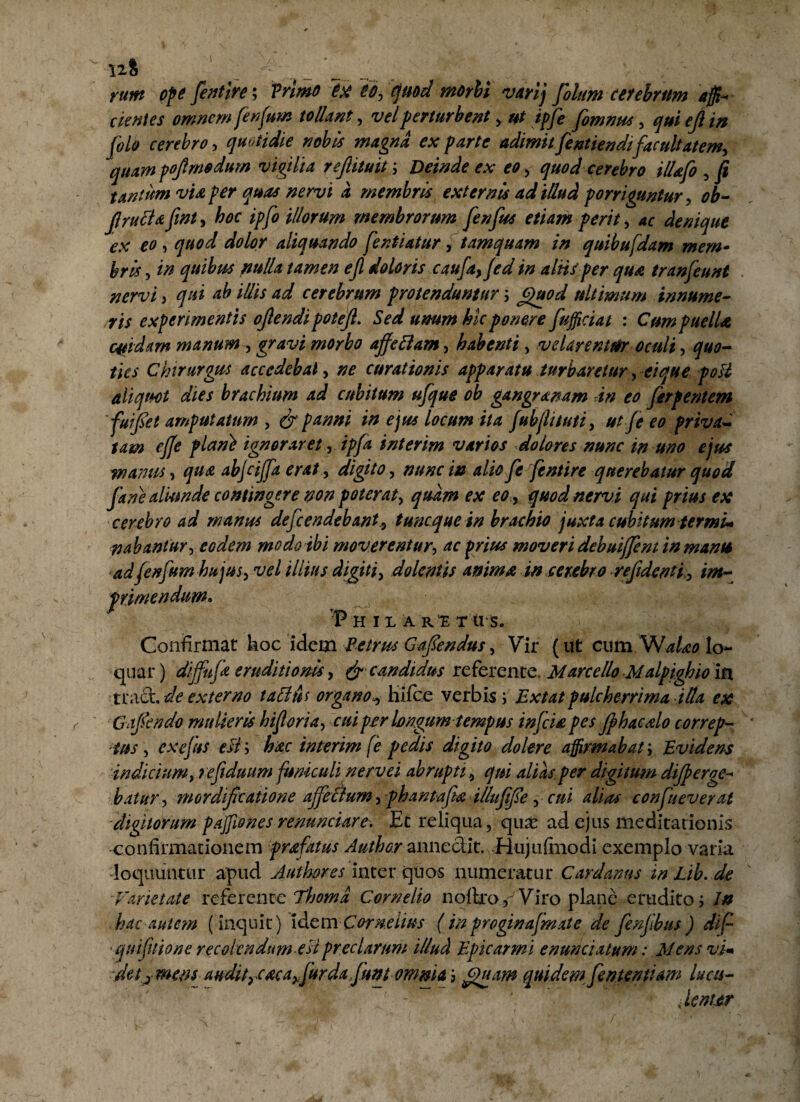 128
rum ope sentire; Primo ex eo, quod morbi varij solum cerebrum affi-
cientes omnem sensum tollant, vel perturbent, ut ipse somnus, qui est in
solo cerebro, quotidie nobis magnâ ex parte adimit sentiendi facultatem,
quam postmodum vigilia restituit; Deinde ex eo, quod cerebro illæso, si
tantùm viæ per quas nervi à membris externis ad illud porriguntur, ob-
structæ sint, hoc ipso illorum membrorum sensus etiam perit, ac denique
ex eo, quod dolor aliquando sentiatur, tamquam in quibusdam mem-
bris, in quibus nulla tamen est doloris causa, sed in aliis per quæ transeunt
nervi, qui ab illis ad cerebrum protenduntur; Quod ultimum innume-
ris experimentis ostendi potest. Sed unum hîc ponere sufficiat : Cum puellæ
cuidam manum, gravi morbo affectam, habenti, velarentur oculi, quo-
ties Chirurgus accedebat, ne curationis apparatu turbaretur, eique post
aliquot dies brachium ad cubitum usque ob gangrænam in eo serpentem
fuisset amputatum, & panni in ejus locum ita substituti, ut se eo priva-
tam esse planè ignoraret, ipsa interim varios dolores nunc in uno ejus
manus, quæ abscissa erat, digito, nunc in alio se sentire querebatur quod
sanè aliunde contingere non poterat, quàm ex eo, quod nervi qui prius ex
cerebro ad manus descendebant, tuncque in brachio juxta cubitum termi-
nabantur, eodem modo ibi moverentur, ac prius moveri debuissent in manu
ad sensum hujus, vel illius digiti, dolentis animæ in cerebro residenti, im-
primendum.
PHILARETUS.
Confirmat hoc idem Petrus Gassendus, Vir (ut cum Walæo lo-
quar) diffusæ eruditionis, & candidus referente. Marcello Malpighio in
tract. de externo tactûs organo, hisce verbis; Extat pulcherrima illa ex
Gassendo mulieris historia, cui per longum tempus insciæ pes sphacælo correp-
tus, exesus est; hæc interim se pedis digito dolere affirmabat; Evidens
indicium, residuum funiculi nervei abrupti, qui aliàs per digitum disperge-
batur, mordificatione affectum, phantasiæ illusisse, cui alias consueverat
digitorum passiones renunciare. Et reliqua, quæ ad ejus meditationis
confirmationem præfatus Author annectit. Hujusmodi exemplo varia
loquuntur apud Authores inter quos numeratur Cardanus in Lib. de
Varietate referente Thomâ Cornelio nostro, Viro planè erudito; In
hac autem (inquit) idem Cornelius (in proginasmate de sensibus) dis-
quisitione recolendum est preclarum illud Epicarmi enunciatum: Mens vi-
det, mens audit, cæca, surda sunt omnia; Quam quidem sententiam lucu-
lenter